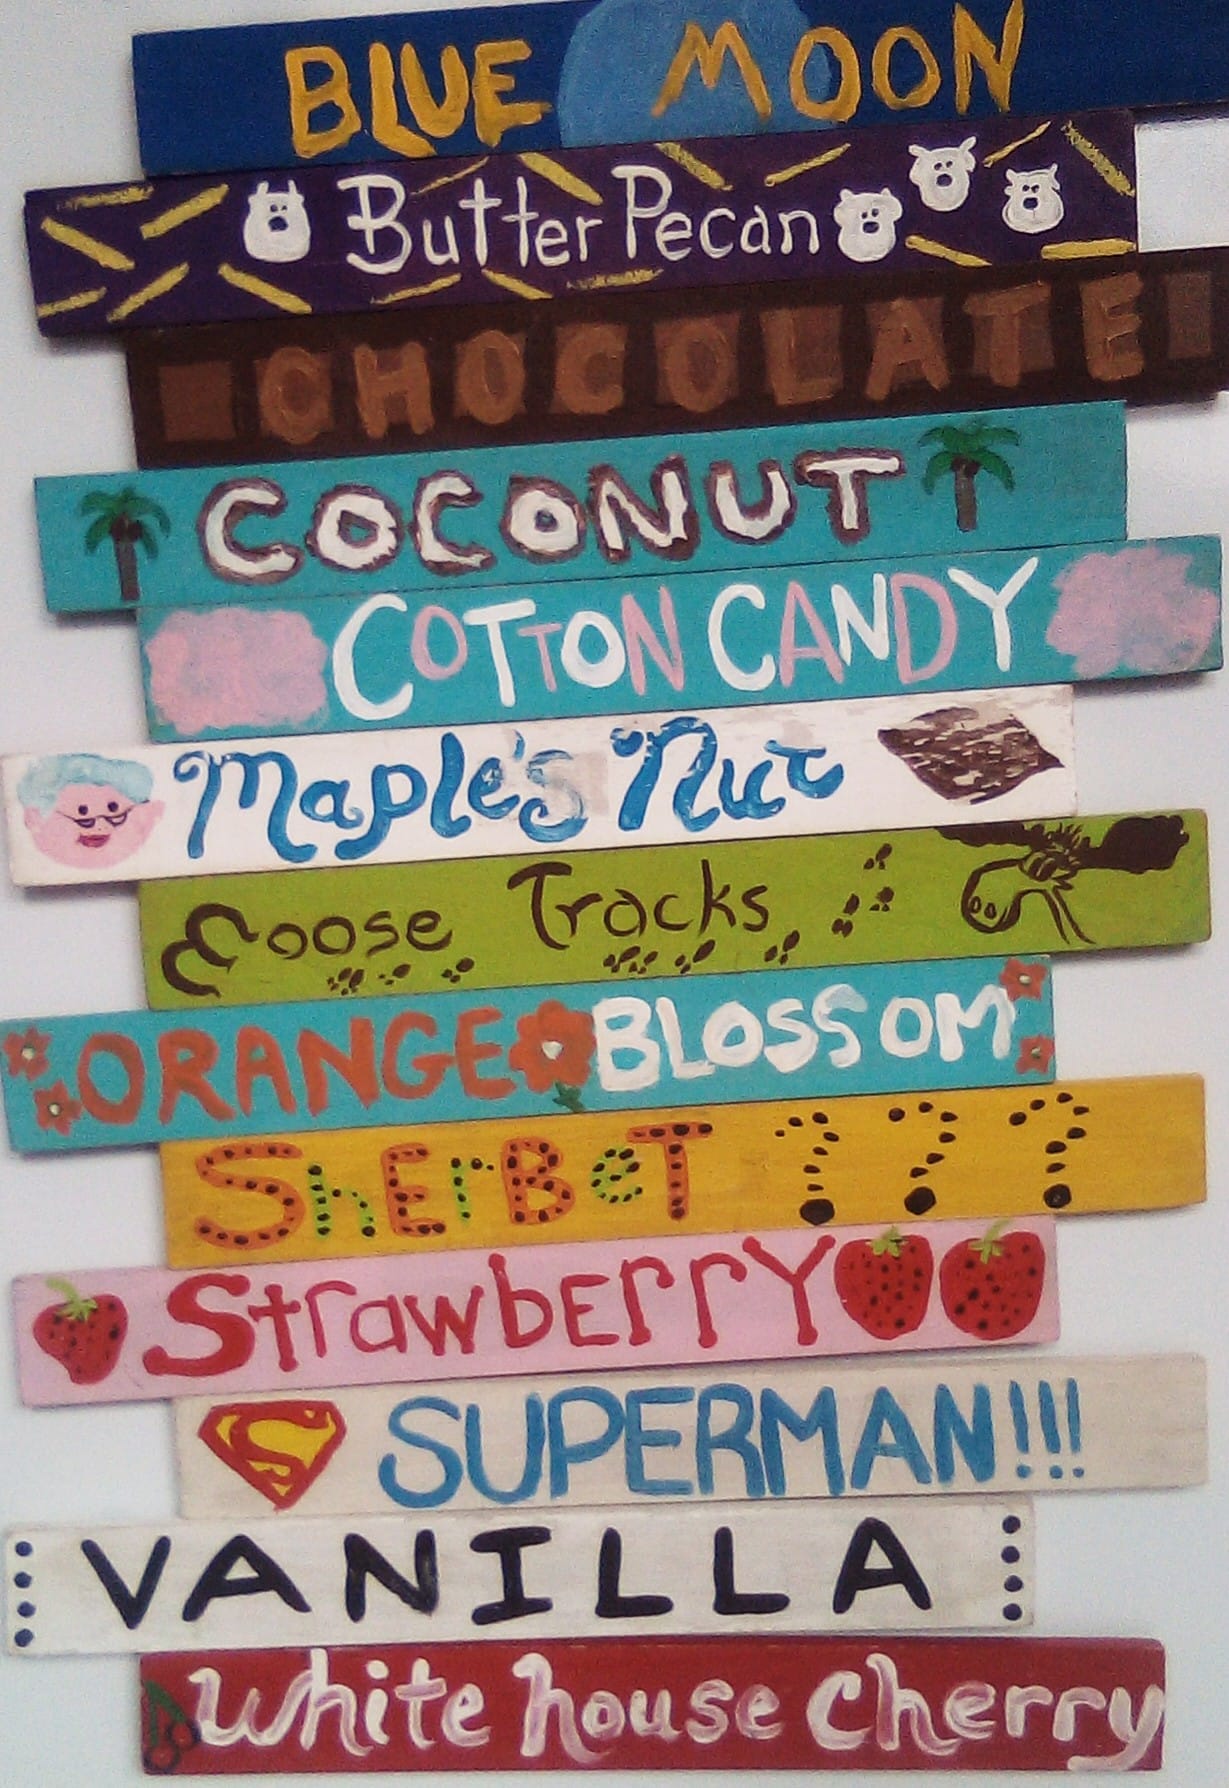 BLUE MOON
Butter Pecan
CHOCOLATE
COCONUT
COTTON CANDY
Maple's Nut
Moose Tracks
ORANGE BLOSSOM
SHErBeT ???
StrawbErrY
S SUPERMAN!!!
VANILLA
White house Cherry